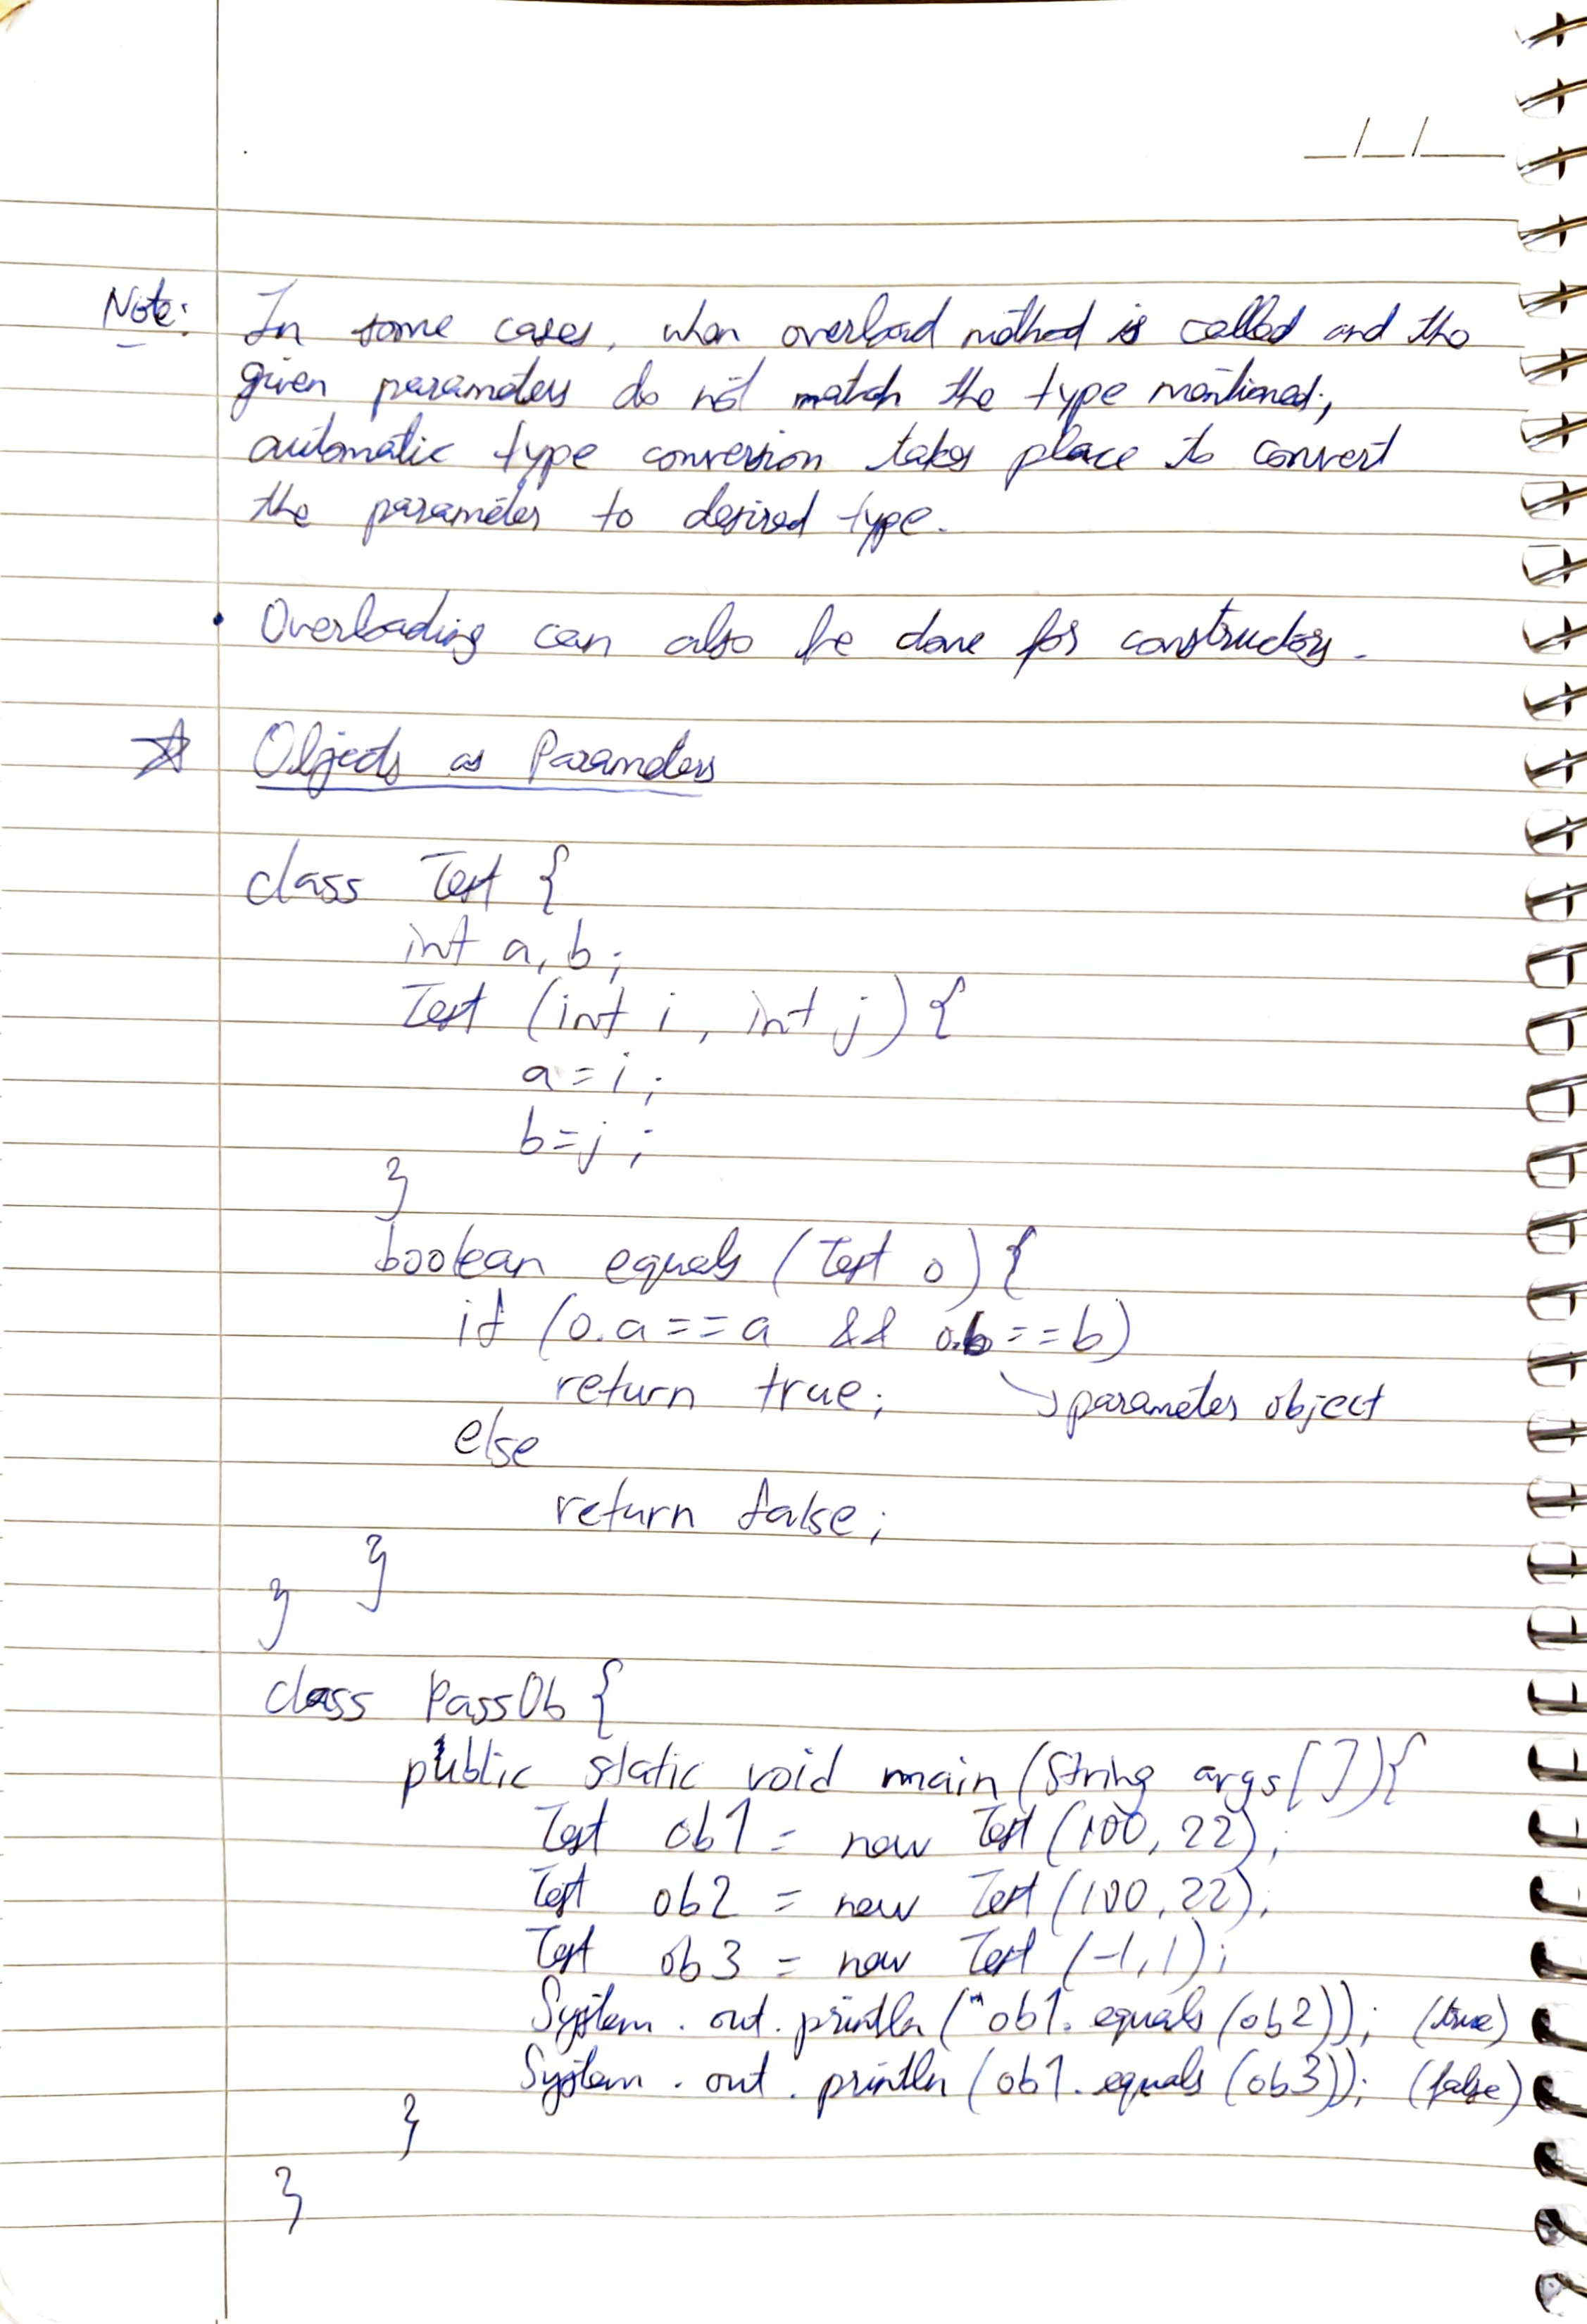 __/__/____
Note: In some cases, when overload method is called and the
given parameters do not match the type mentioned,
automatic type conversion takes place to convert
the parameter to desired type.
• Overloading can also be done for constructors.
☆ Objects as Parameters
class Test {
int a, b;
Test (int i, int j) {
a = i;
b = j;
}
boolean equals (Test o) {
if (o.a == a && o.b == b)
return true; ↘ parameter object
else
return false;
}
}
class PassOb {
public static void main (String args[]){
Test ob1 = new Test (100, 22);
Test ob2 = new Test (100, 22);
Test ob3 = new Test (-1, 1);
System.out.println ("ob1.equals (ob2)); (true)
System.out.println (ob1.equals (ob3)); (false)
}
}